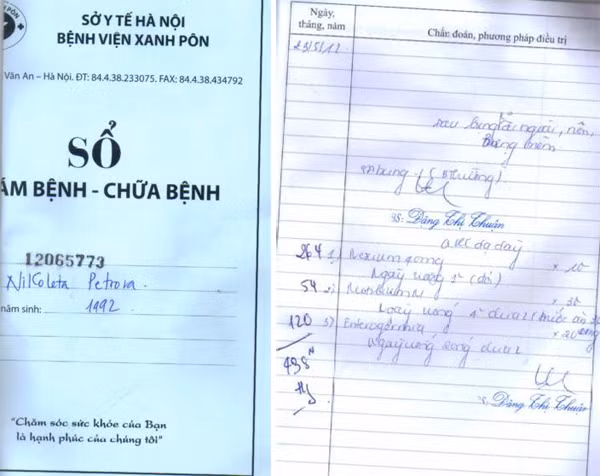 PÔN
SỞ Y TẾ HÀ NỘI
BỆNH VIỆN XANH PÔN
Văn An – Hà Nội. ĐT: 84.4.38.233075. FAX: 84.4.38.434792
SỔ
ÁM BỆNH - CHỮA BỆNH
12065773
Nikoleta Petrova.
năm sinh: 1992
"Chăm sóc sức khỏe của Bạn
là hạnh phúc của chúng tôi"
Ngày, tháng, năm
Chẩn đoán, phương pháp điều trị
23/5/12
đau bụng, nôn,
BS: Đặng Thị Thuận
dạ dày
264 1) Nexium 40mg × 10
Ngày uống 1v (đói)
54 2) Motilium M × 30
Ngày uống
120 3) Enterogermina × 20 ống
Ngày uống 2 ống chia 2
438
BS: Đặng Thị Thuận